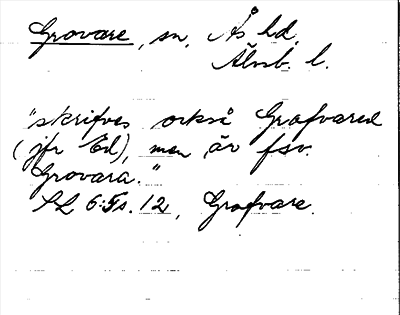 Grovare, sn, Ås hd.
Älvsb. l.
"skrifves också Grafvared
(jfr Ed), men är fsv.
Grovara."
SL 6:5 s. 12, Grofvare.